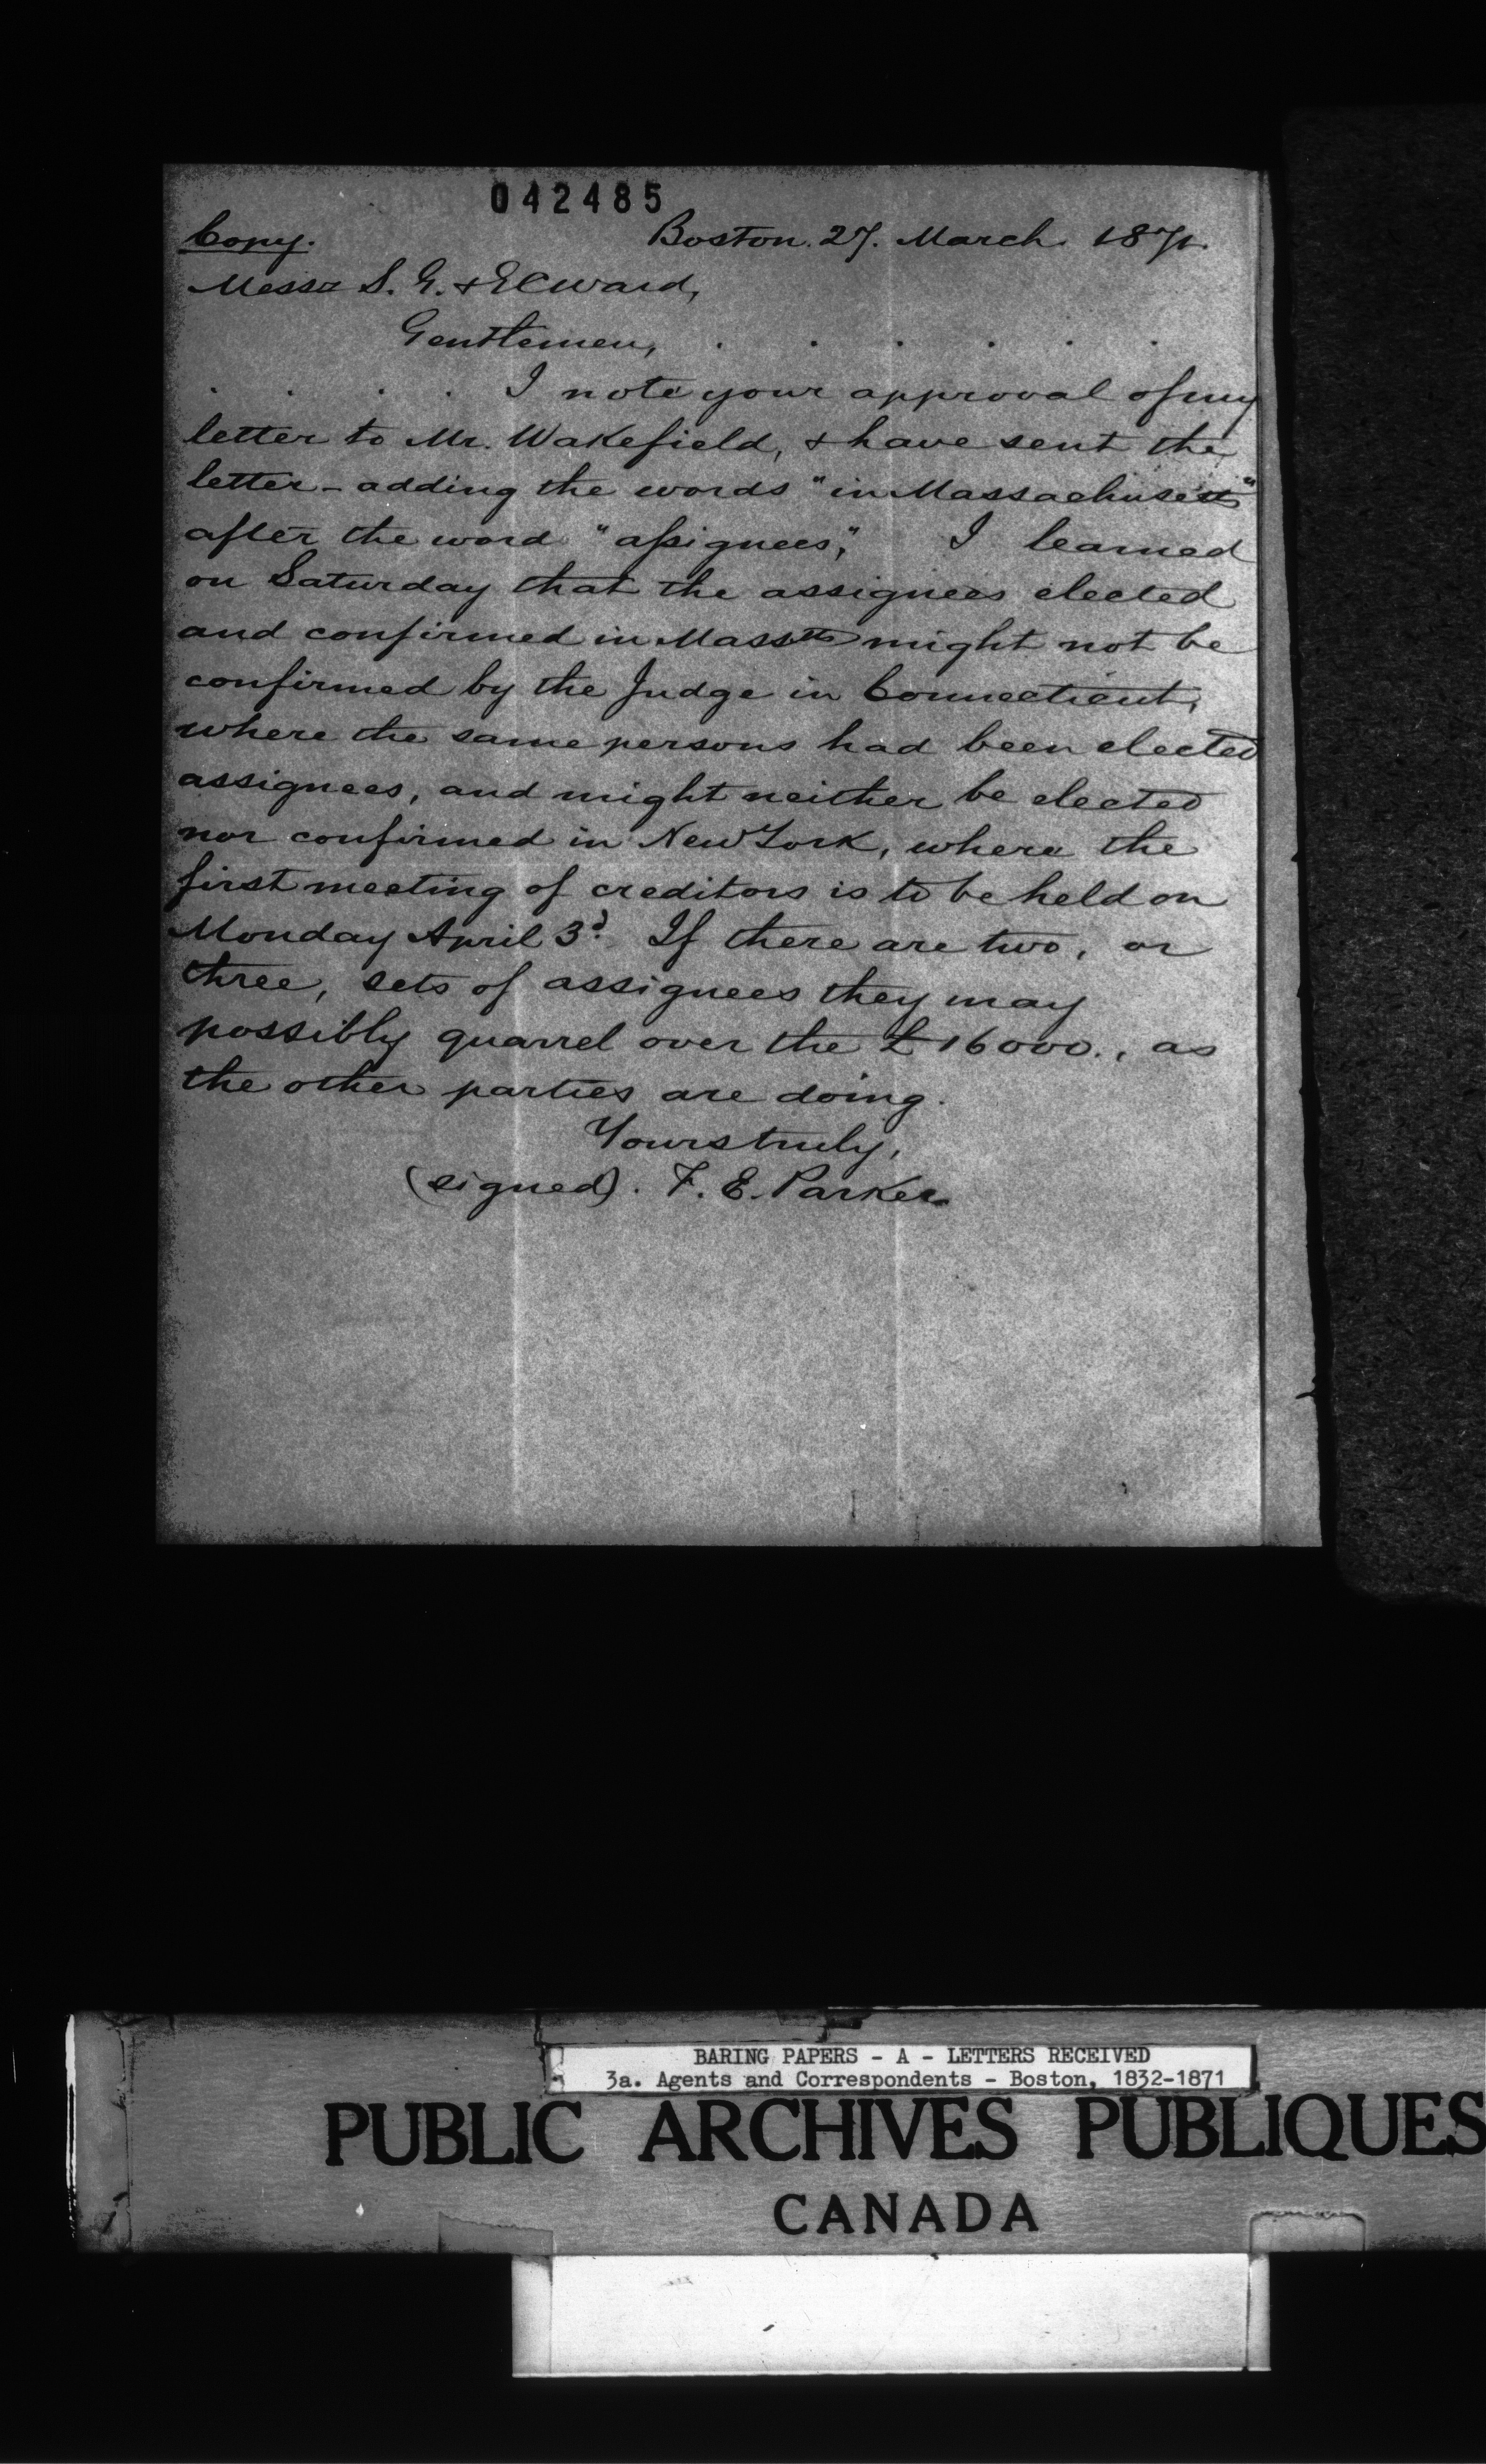 042485
Copy. Boston. 27. March. 1871.
Messrs S. G. & E C Ward,
Gentlemen, . . . . . .
. . . . I note your approval of my
letter to Mr. Wakefield, & have sent the
letter - adding the words "in Massachusetts"
after the word "assignees," I learned
on Saturday that the assignees elected
and confirmed in Masstts might not be
confirmed by the Judge in Connecticut,
where the same persons had been elected
assignees, and might neither be elected
nor confirmed in New York, where the
first meeting of creditors is to be held on
Monday April 3d. If there are two, or
three, sets of assignees they may
possibly quarrel over the £16000., as
the other parties are doing.
Yours truly,
(signed). F. E. Parker
BARING PAPERS - A - LETTERS RECEIVED
3a. Agents and Correspondents - Boston, 1832-1871
PUBLIC ARCHIVES PUBLIQUES
CANADA